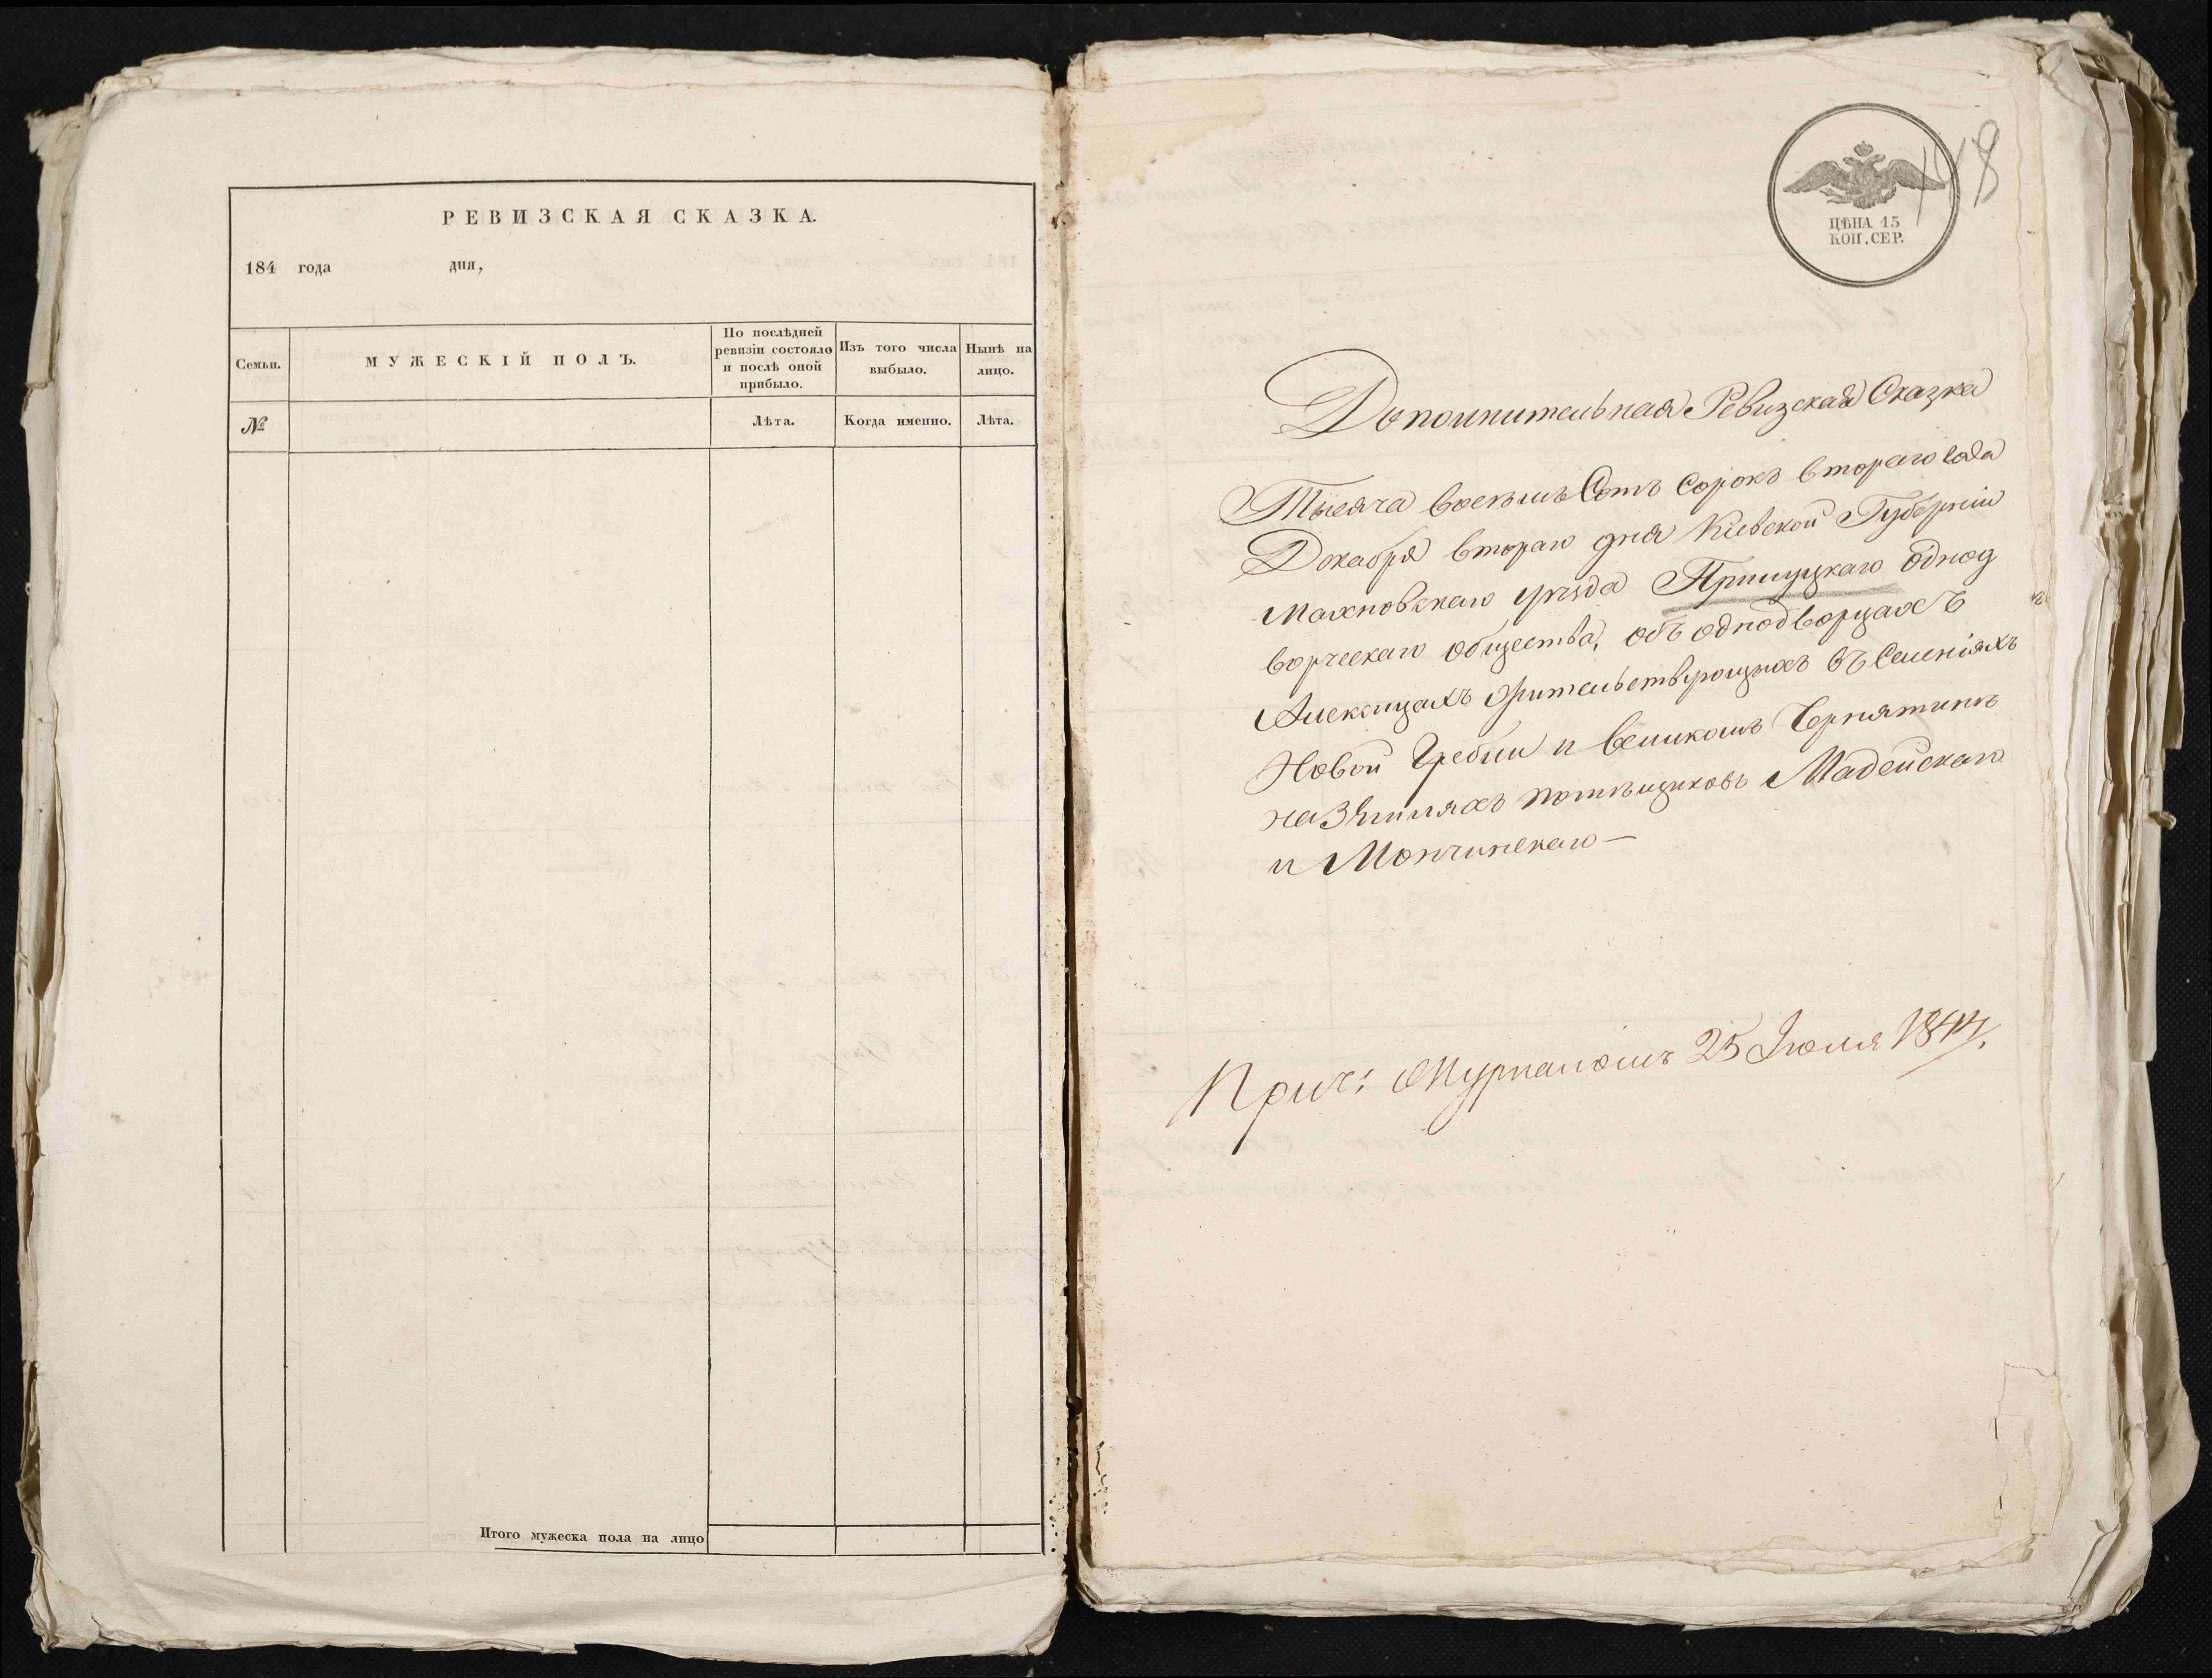 РЕВИЗСКАЯ СКАЗКА.
184 года дня,
Семьи.
МУЖЕСКІЙ ПОЛЪ.
По послѣдней
ревизіи состояло
и послѣ оной
прибыло.
Изъ того числа
выбыло.
Нынѣ на
лицо.
№
Лѣта.
Когда именно.
Лѣта.
Итого мужеска пола на лицо
ЦѢНА 15
КОП. СЕР.
8
Дополнительная Ревизская Сказка
Тысяча восемь Сотъ сорокъ втораго года
Декабря втораго дня Кіевской Губерніи
Махновскаго уѣзда Прилуцкаго однод
ворческаго общества, объ однодворцахъ
жительствующихъ въ Селеніяхъ
Новой Гребли и великомъ Чернятинѣ
на Земляхъ помѣщиковъ Мадейскаго
и Мончинскаго —
Прич: Журналомъ 25 Іюля 1844.